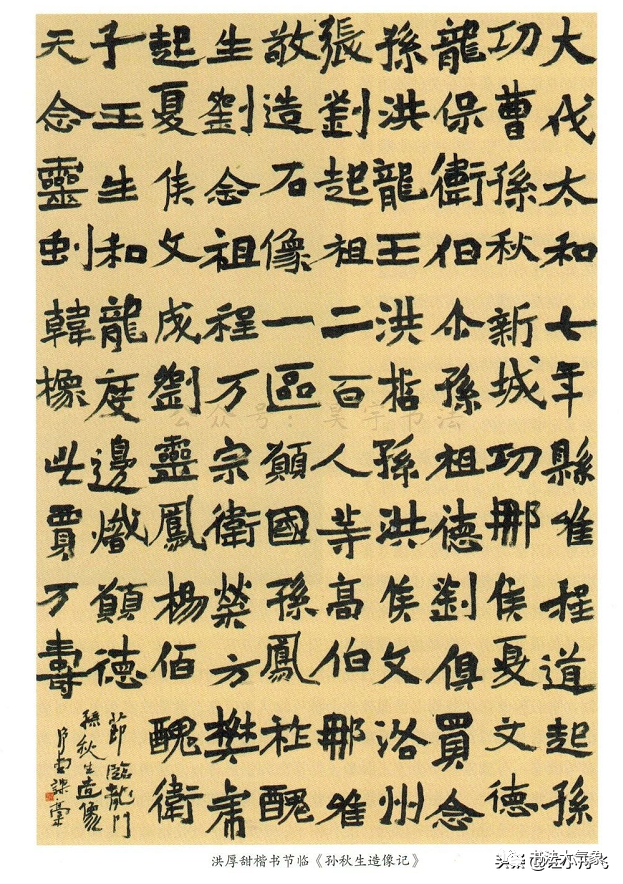 大伐太和七年縣唯程道起孫
功曹孫秋新城功那侯夏文德
龍保衛伯尒孫祖德劉俱買念
孫洪龍王洪哲孫洪侯文洛州
張劉起祖二百人等高伯那唯
敬造石像一區願國孫鳳祚醜
生劉念祖程万宗衛榮方樊虎
起夏侯文成劉靈鳳楊佰醜衛
子王生和龍度邊熾願德
天念靈虬韓橡此賈万壽
節臨龍門
孫秋生造像
公众号：吴宇书法
洪厚甜楷书节临《孙秋生造像记》
书法大气象
头条